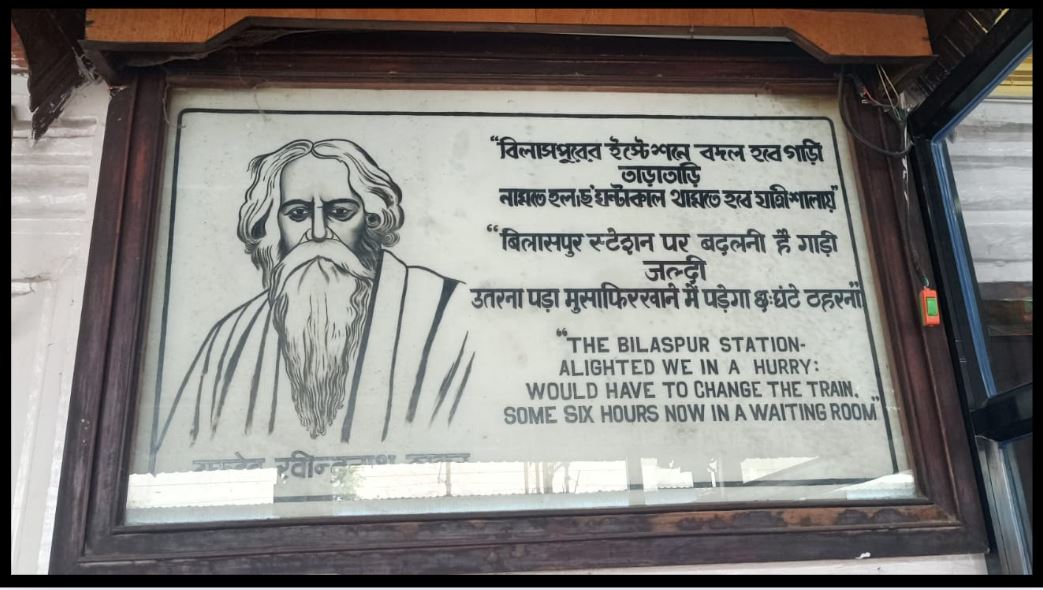 "বিলাসপুরের ইস্টেশনে বদল হবে গাড়ী
তাড়াতাড়ি
নামতে হল।ছ ঘন্টাকাল থামতে হবে যাত্রীশালায়"
"बिलासपुर स्टेशन पर बदलनी है गाड़ी
जल्दी
उतरना पड़ा मुसाफिरखाने में पड़ेगा छःघंटे ठहरना"
"THE BILASPUR STATION-
ALIGHTED WE IN A HURRY:
WOULD HAVE TO CHANGE THE TRAIN,
SOME SIX HOURS NOW IN A WAITING ROOM"
रवीन्द्रनाथ